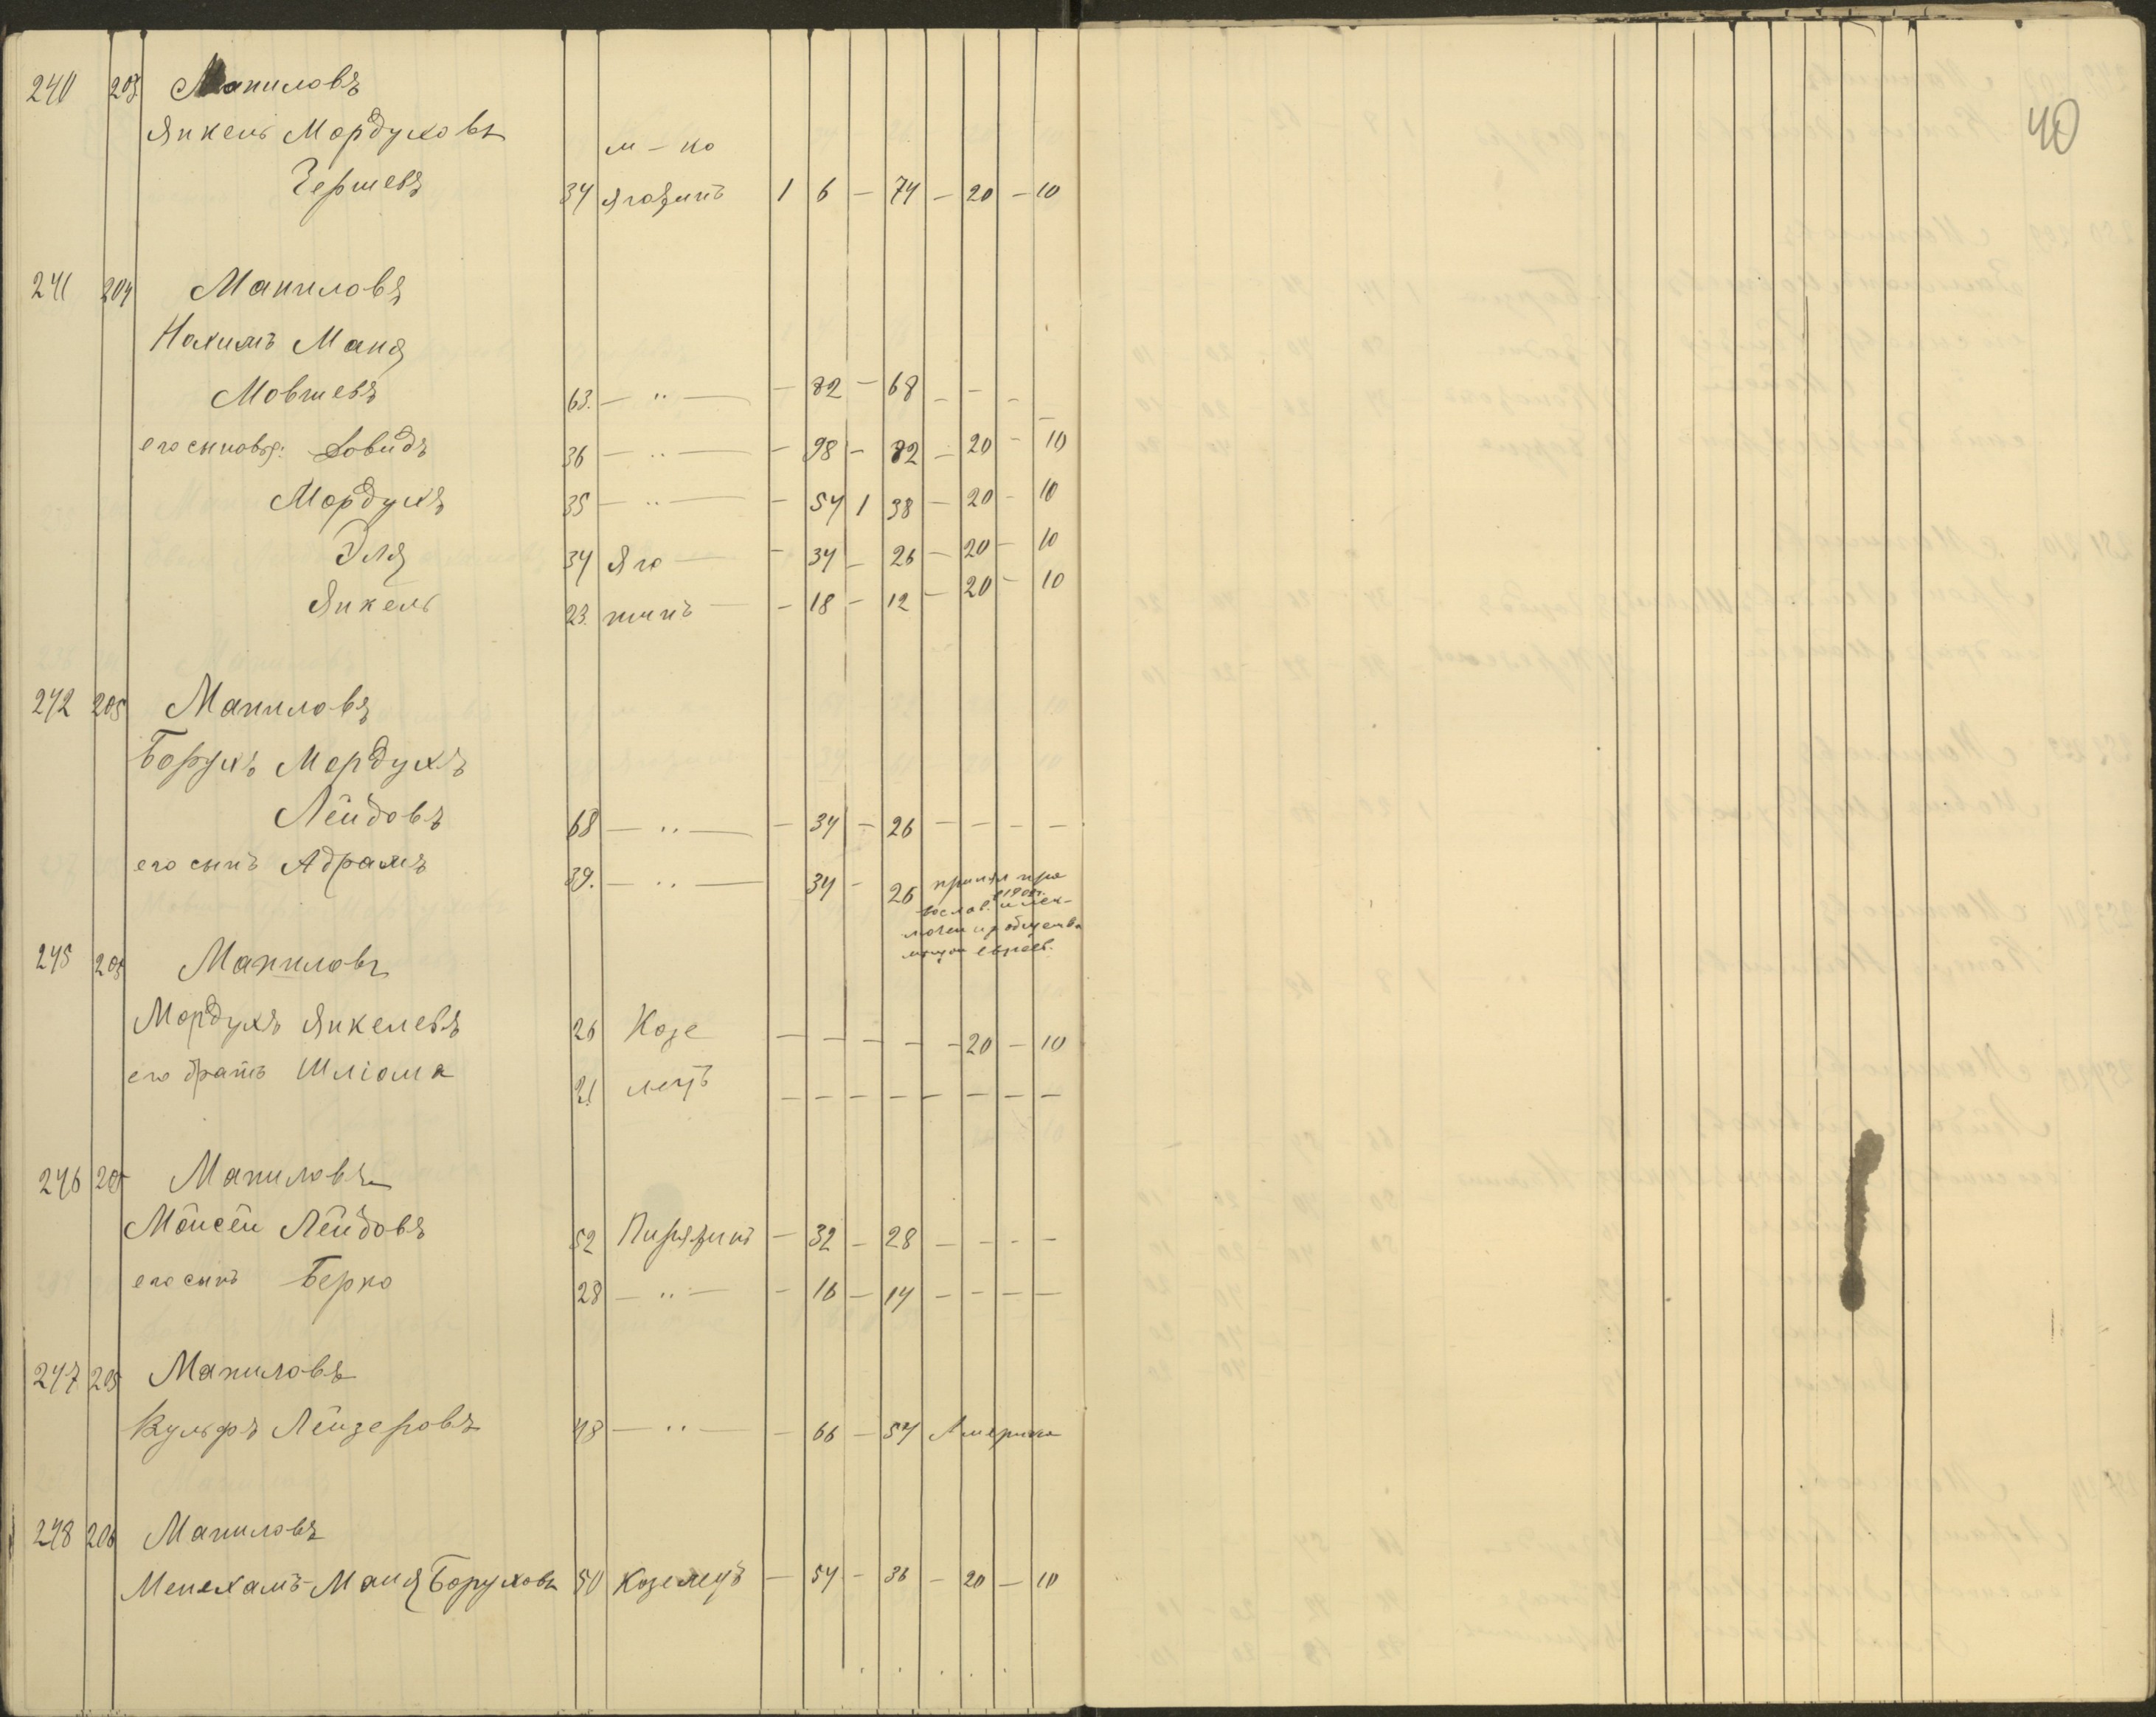 40
240 203 Маниловъ
Янкель Мордуховъ
м-ко
Гершевъ 34 Яготинъ 1 6 — 74 — 20 — 10
241 204 Маниловъ
Нахимъ Маня
Мовшевъ 63. — " — — 82 — 68 — — — —
его сыновья: Довидъ 36 — " — — 98 — 82 — 20 — 10
Мордухъ 35 — " — — 54 1 38 — 20 — 10
Эля 34 Яго — — 34 — 26 — 20 — 10
Янкель 23. тинъ — — 18 — 12 — 20 — 10
242 205 Маниловъ
Борухъ Мордухъ
Лейдовъ 68 — " — — 34 — 26 — — — —
его сынъ Абрамъ 39. — " — 34 — 26 принял пра
вослав. и иск-
лючен из общества
евреев.
245 205 Маниловъ
Мордухъ Янкелевъ 26 Козе — — — — — 20 — 10
его братъ Шліома 21 лецъ — — — — — — — —
246 205 Маниловъ
Мойсей Лейдовъ 52 Пирятинъ — 32 — 28 — — — —
его сынъ Берко 28 — " — — 16 — 14 — — — —
247 205 Маниловъ
Вульфъ Лейзеровъ 48 — " — — 66 — 54 Америка
248 206 Маниловъ
Менехамъ-Маня Боруховъ 50 Козелецъ — 54 — 36 — 20 — 10